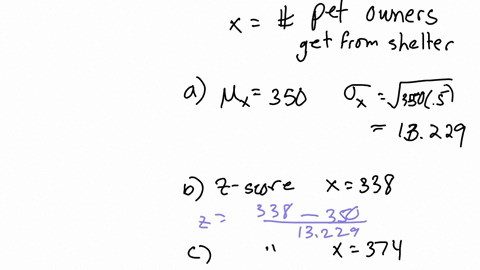 x = # pet owners
get from shelter
a) μₓ = 350 σₓ = √350(.5)
= 13.229
b) z-score x = 338
z = 338 - 350 / 13.229
c) " x = 374